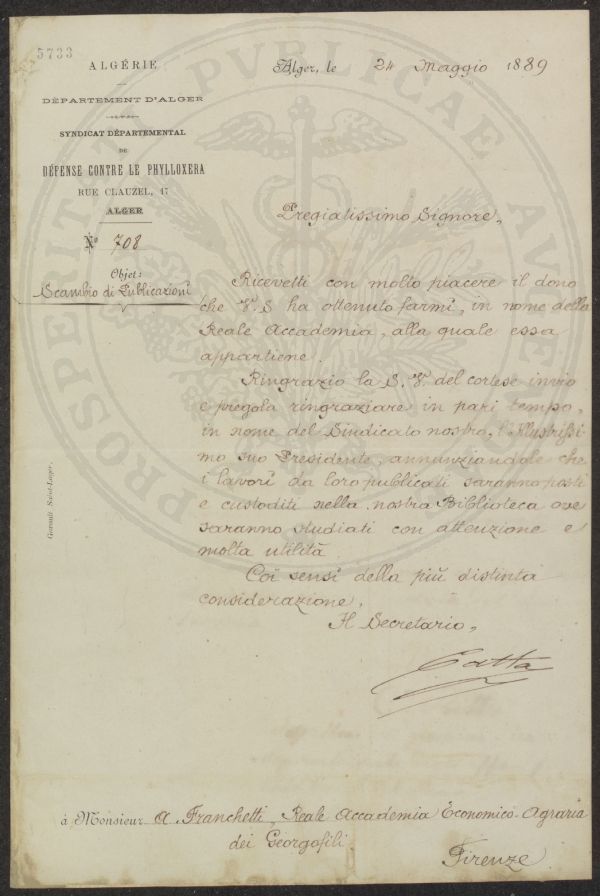 5733
ALGÉRIE
DÉPARTEMENT D'ALGER
SYNDICAT DÉPARTEMENTAL
DE
DÉFENSE CONTRE LE PHYLLOXERA
RUE CLAUZEL, 17
ALGER
N° 708
Objet:
Scambio di Publicazioni
Alger, le 24 Maggio 1889
Pregiatissimo Signore,
Ricevetti con molto piacere il dono
che V. S ha ottenuto farmi, in nome della
Reale Accademia, alla quale essa
appartiene.
Ringrazio la S. V. del cortese invio
e pregola ringraziare in pari tempo,
in nome del Sindicato nostro, l'Illustrissi
mo suo Presidente, annunziandole che
i lavori da loro publicati saranno posti
e custoditi nella nostra Biblioteca ove
saranno studiati con attenzione e
molta utilità.
Coi sensi della più distinta
considerazione,
Il Secretario,
Gerault Saint-Lager.
à Monsieur A. Franchetti, Reale Accademia Economico-Agraria
dei Georgofili.
Firenze
PROSPERITATI PVBLICAE AVGENDAE